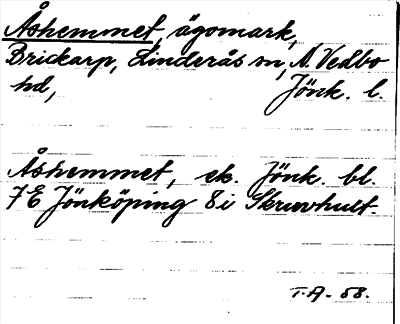 Åshemmet, ägomark,
Brickarp, Linderås sn, N. Vedbo
hd, Jönk. l.
Åshemmet, ek. Jönk. bl.
7E Jönköping 8i Skruvhult.
T.A. 58.